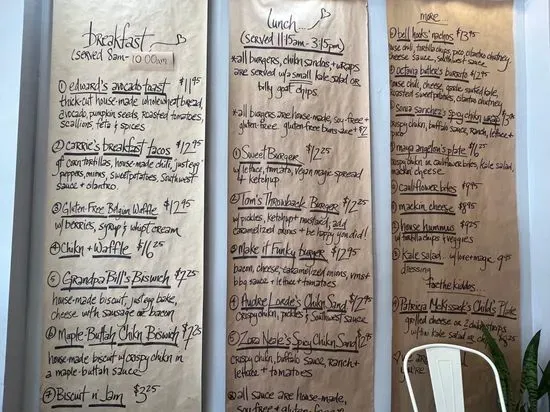 breakfast
(served 8am - 10:00am)
① edward's avocado toast $11.95
thick-cut house-made wholewheat bread,
avocado, pumpkin seeds, roasted tomatoes,
scallions, feta & spices
② carrie's breakfast tacos $12.95
gf corn tortillas, house-made chili, just egg,
peppers, onions, sweet potatoes, southwest
sauce + cilantro
③ Gluten-Free Belgian Waffle $12.95
w/ berries, syrup & whipt cream
④ Chikn + Waffle $16.25
⑤ Grandpa Bill's Biswich $7.25
house-made biscuit, just egg bake,
cheese with sausage or bacon
⑥ Maple-Buttah Chikn Biswich $7.25
house-made biscuit w/ crispy chikn in
a maple-buttah sauce
⑦ Biscuit n' Jam $3.25
lunch
(served 11:15am - 3:15pm)
*all burgers, chikn sandos + wraps
are served w/ a small kale salad or
billy goat chips.
*all burgers are house-made, soy-free +
gluten-free. gluten-free buns are + $2
① Sweet Burger $12.25
w/ lettuce, tomato, vegan magic spread
& ketchup
② Tom's Throwback Burger $12.25
w/ pickles, ketchup + mustard; add
caramelized onions + be happy you did!
③ Make it Funky burger $12.95
bacon, cheese, caramelized onions, vms +
bbq sauce + lettuce + tomatoes
④ Audre Lorde's Chikn Sand $12.95
crispy chikn, pickles + southwest sauce
⑤ Zora Neale's Spicy Chikn Sand
crispy chikn, buffalo sauce, ranch +
lettuce + tomatoes
*all sauces are house-made,
soy-free + gluten-free
more
① bell hooks' nachos $13.95
house chili, tortilla chips, pico, cilantro chutney
cheese sauce,
② octavia butler's burrito $12.95
house chili, cheese, garlic sauteed kale,
roasted sweet potatoes, cilantro chutney
sonia sanchez's spicy chikn wrap
crispy chikn, buffalo sauce, ranch, lettuce +
pico
maya angelou's plate
crispy chikn or cauliflower bites, kale salad,
mackin cheese
cauliflower bites $9.95
mackin cheese $8.95
house hummus $9.25
w/ tortilla chips + veggies
kale salad w/ 9.95
dressing
for the kiddies
Patricia McKissack's Child's Plate
grilled cheese or 2 chikn strips
w/ kale salad or chips
you are